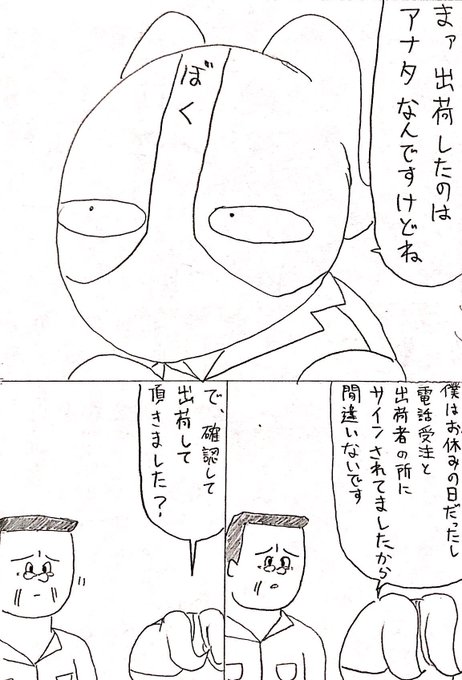 まァ出荷したのは
アナタなんですけどね
ぼく
僕はお休みの日だったし
電話受注と
出荷者の所に
サインされてましたから
間違いないです
で、確認して
出荷して
頂きました？